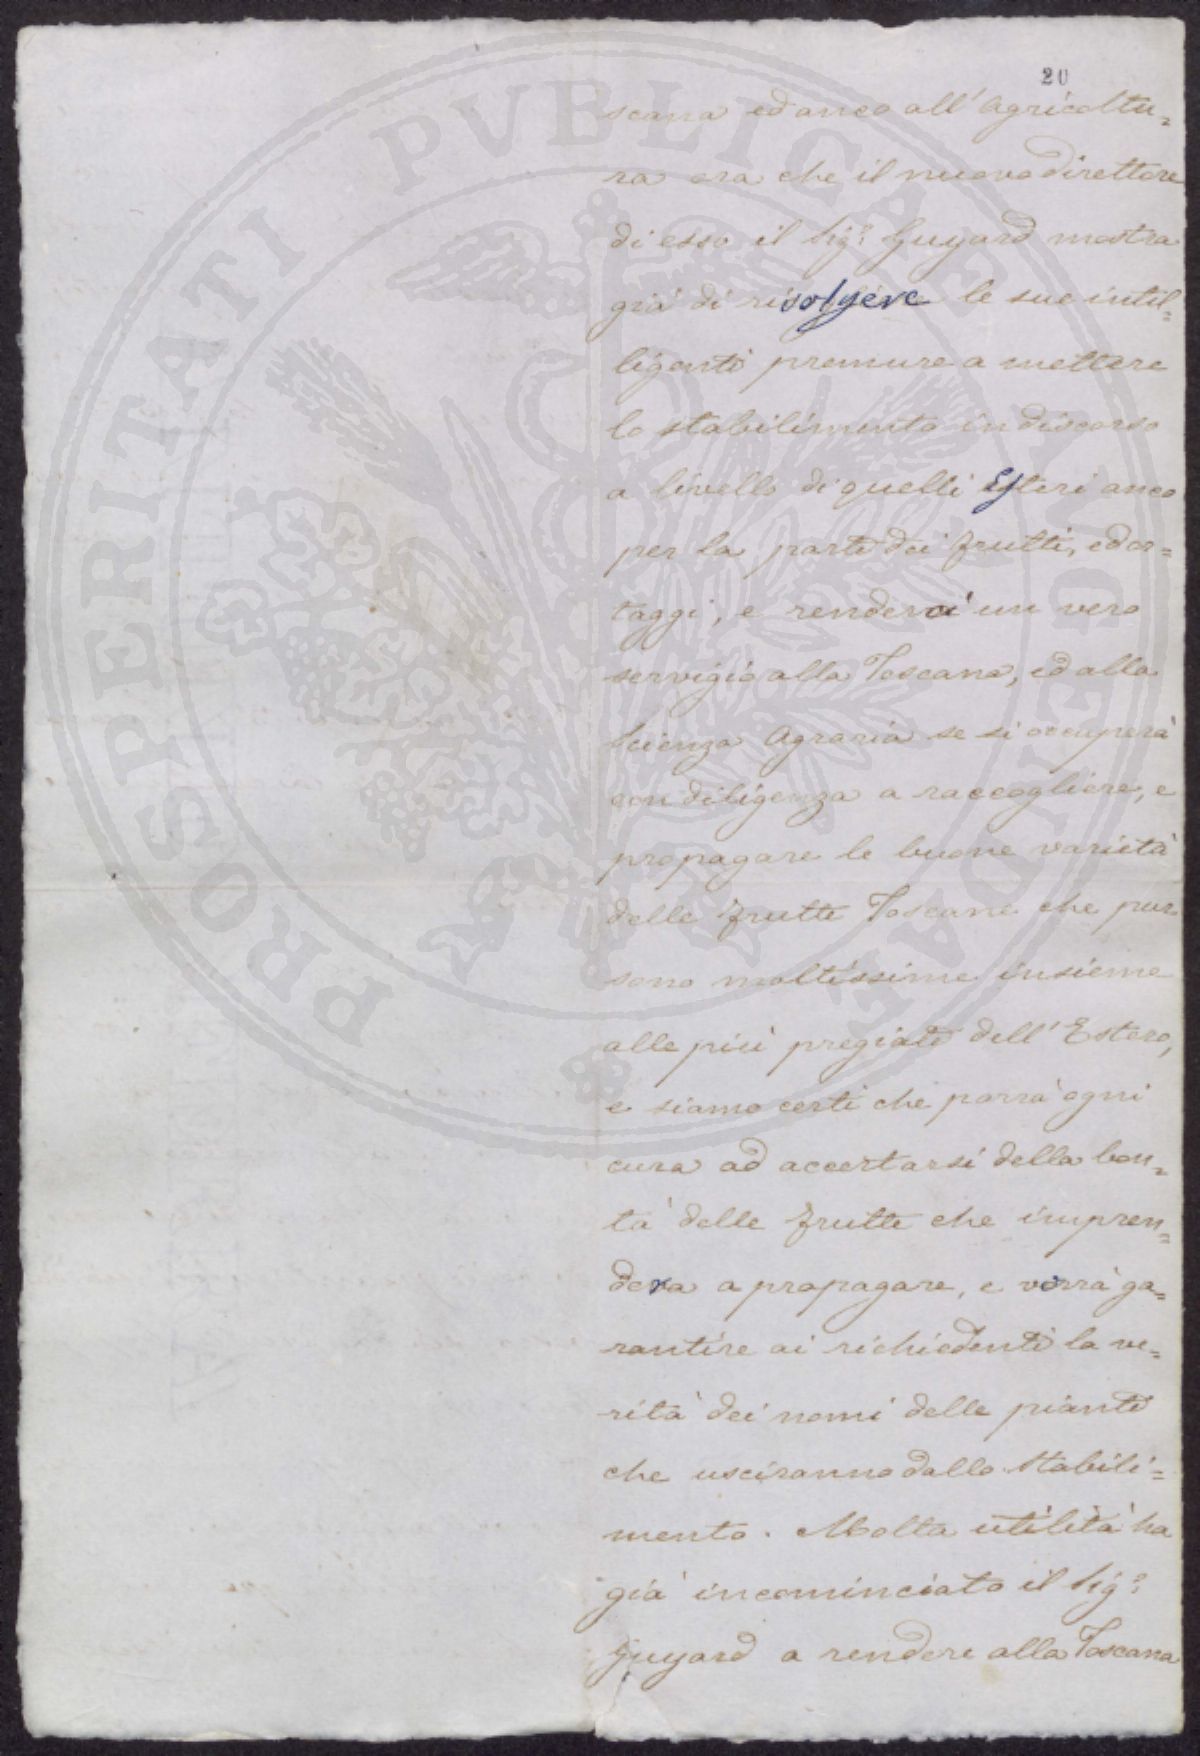 20
scana ed anco all'Agricoltu=
ra ora che il nuovo direttore
di esso il Sig.r Guyard mostra
già di rivolgere le sue intil=
ligenti premure a mettere
lo stabilimento in discorso
a livello di quelli Esteri anco
per la parte dei frutti, ed or=
taggi, e renderà un vero
servigio alla Toscana, ed alla
Scienza Agraria se si occuperà
con diligenza a raccogliere, e
propagare le buone varietà
delle frutte Toscane che pur
sono moltissime insieme
alle più pregiate dell'Estero,
e siamo certi che porrà ogni
cura ad accertarsi della bon=
tà delle frutte che impren=
derà a propagare, e vorrà ga=
rantire ai richiedenti la ve=
rità dei nomi delle piante
che usciranno dallo Stabili=
mento. Molta utilità ha
già incominciato il Sig.r
Guyard a rendere alla Toscana
PROSPERITATI PVBLICAE AVGENDAE